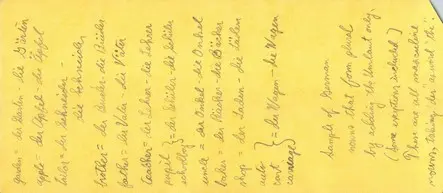 garden = der Garten - die Gärten
apple = der Apfel - die Äpfel
tailor = der Schneider -
die Schneider
brother = der Bruder, die Brüder
father = der Vater, die Väter
teacher = der Lehrer - die Lehrer
pupil } = der Schüler - die Schüler
schoolboy
uncle = der Onkel - die Onkel
baker = der Bäcker die Bäcker
shop = der Laden - die Läden
auto
cart } = der Wagen - die Wagen
carriage
Sample of German
nouns that form plural
by adding the Umlaut only.
(Some exceptions included)
These are all masculine
nouns, taking der and the